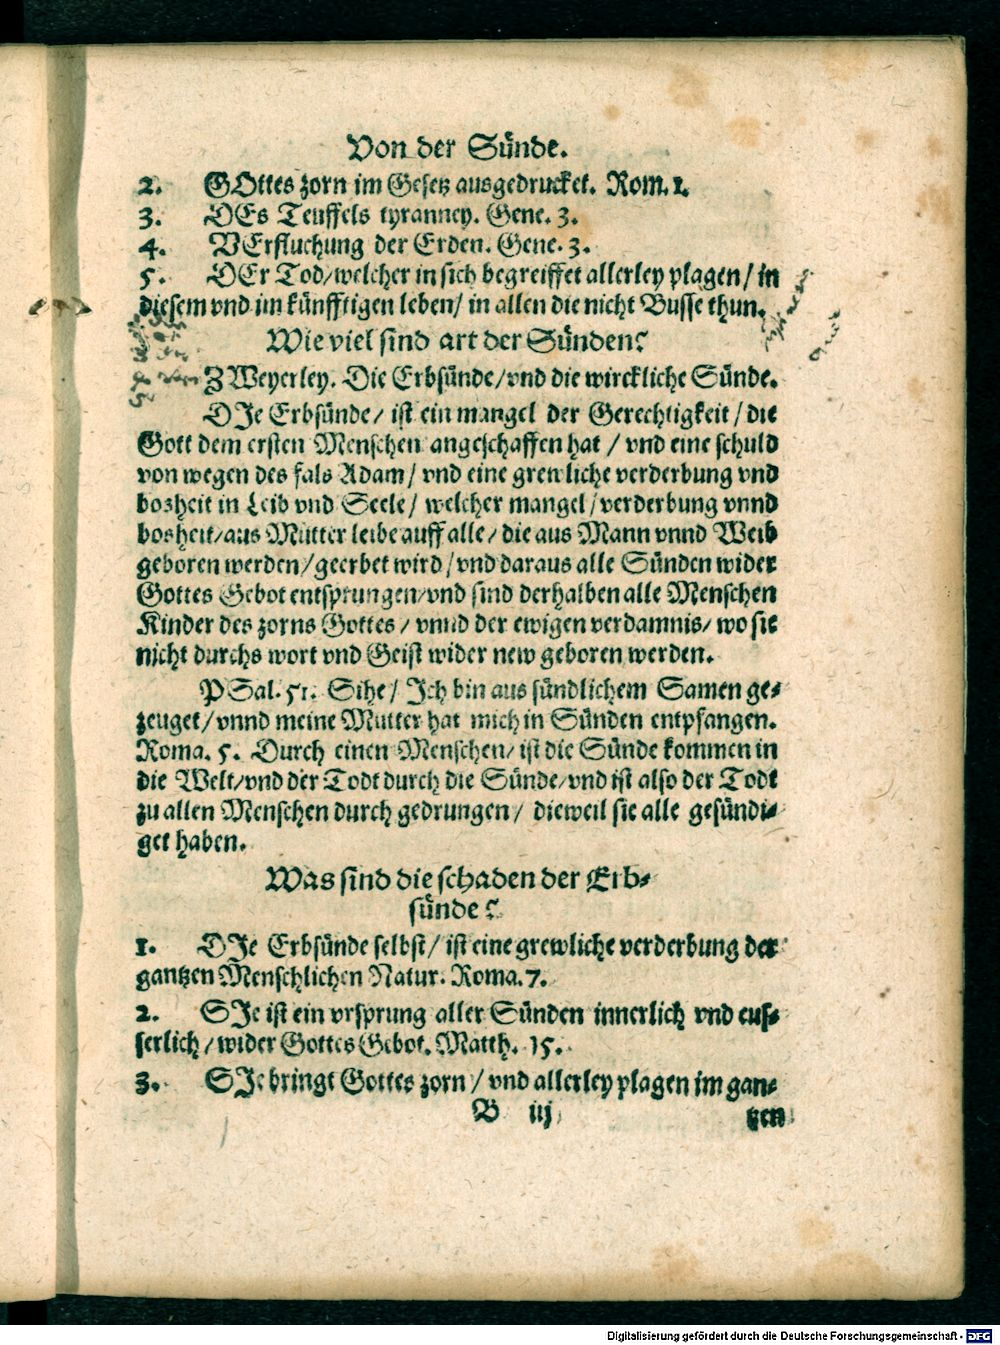 Von der Sünde.
2. GOttes zorn im Gesetz ausgedrucket. Rom. 1.
3. DEs Teuffels tyranney. Gene. 3.
4. VErfluchung der Erden. Gene. 3.
5. DEr Tod/welcher in sich begreiffet allerley plagen/ in
diesem vnd im künfftigen leben/ in allen die nicht Busse thun.
Wie viel sind art der Sünden?
ZWeyerley. Die Erbsünde/vnd die wirckliche Sünde.
DIe Erbsünde/ ist ein mangel der Gerechtigkeit/ die
Gott dem ersten Menschen angeschaffen hat / vnd eine schuld
von wegen des fals Adam/ vnd eine grewliche verderbung vnd
bosheit in Leib vnd Seele/ welcher mangel/verderbung vnnd
bosheit/aus Mutter leibe auff alle/ die aus Mann vnnd Weib
geboren werden/geerbet wird/vnd daraus alle Sünden wider
Gottes Gebot entsprungen/vnd sind derhalben alle Menschen
Kinder des zorns Gottes/ vnnd der ewigen verdamnis/ wo sie
nicht durchs wort vnd Geist wider new geboren werden.
PSal. 51. Sihe/ Ich bin aus sündlichem Samen ge-
zeuget/vnnd meine Mutter hat mich in Sünden entpfangen.
Roma. 5. Durch einen Menschen/ ist die Sünde kommen in
die Welt/vnd der Todt durch die Sünde/vnd ist also der Todt
zu allen Menschen durch gedrungen/ dieweil sie alle gesündi-
get haben.
Was sind die schaden der Erb-
sünde?
1. DIe Erbsünde selbst/ ist eine grewliche verderbung der
gantzen Menschlichen Natur. Roma. 7.
2. SIe ist ein vrsprung aller Sünden innerlich vnd eus-
serlich/wider Gottes Gebot. Matth. 15.
3. SIe bringt Gottes zorn/ vnd allerley plagen im gan-
B iij
tzen
Digitalisierung gefördert durch die Deutsche Forschungsgemeinschaft - DFG